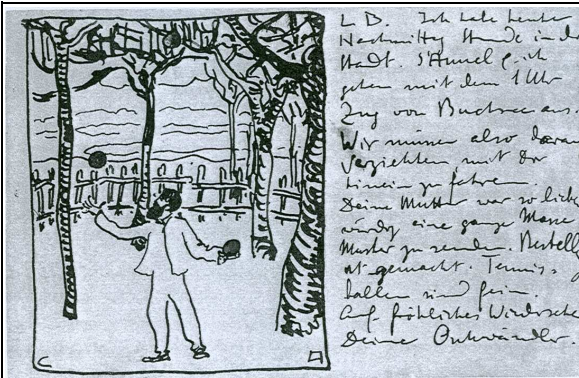 L B. Ich habe heute
Nachmittag Stunde in der
Stadt.
gehen mit dem 1 Uhr
Zug von Buchsee aus.
Wir müssen also darauf
verzichten mit Dir
hinein zu fahren.
Deine Mutter war so liebens
würdig eine ganze Masse
Muster zu senden. Bestellg
ist gemacht. Tennis-
ballen sind fein.
Auf fröhliches Wiedersehe
Deine
C A